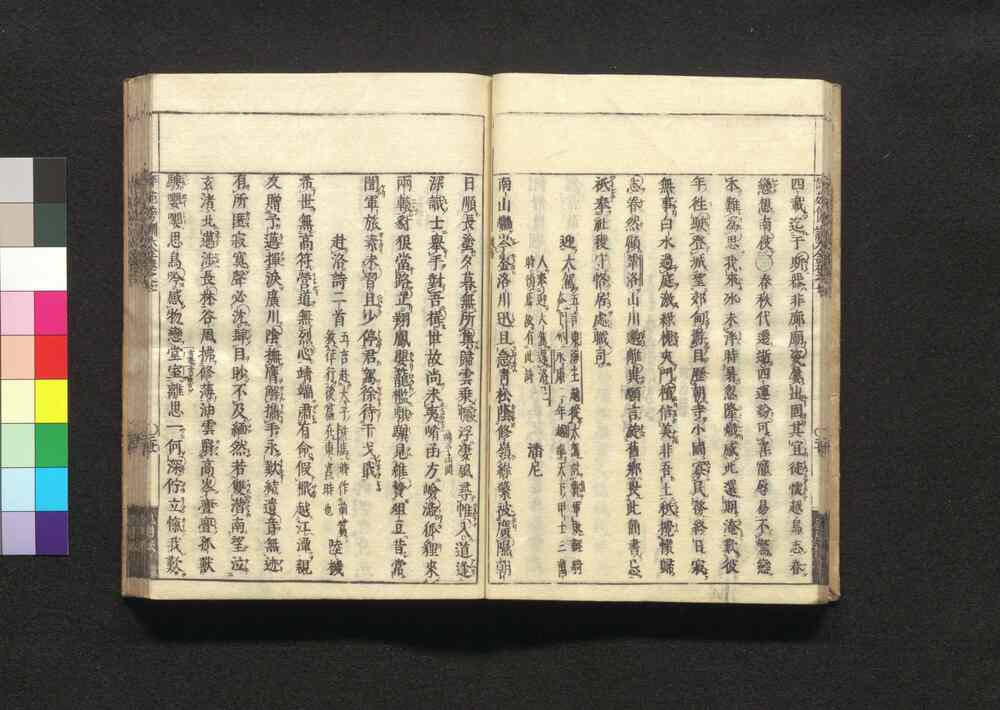 四載迄于斯器非廊廟姿屢出固其宜徒懷越鳥志眷
戀想南枝 春秋代遷逝四運紛可喜寵辱易不驚戀
本難爲思我來冰未泮時暑忽隆熾感此還期淹歎彼
年往駛登城望郊甸游目歷朝寺小國寡民務終日寂
無事白水過庭激綠槐夾門植信美非吾土祇攪懷歸
志卷然顧鞏洛山川邈離異願言旋舊鄉畏此簡書忌
祇奉社稷守恪居處職司
迎大駕
潘尼
南山鬱岑崟洛川迅且急青松蔭修嶺綠蘩被廣隰朝
日順長塗夕暮無所集歸雲乘幰浮凄風尋帷入道逢
深識士舉手對吾揖世故尚未夷崤函方嶮澁狐狸夾
兩轅豺狼當路立翔鳳嬰籠檻騏驥見維縶俎豆昔嘗
聞軍旅素未習且少停君駕徐待干戈戢
赴洛詩二首
陸機
希世無高符營道無烈心靖端肅有命假檝越江潭親
友贈予邁揮淚廣川陰撫膺解攜手永歎結遺音無迹
有所匿寂寞聲必沈肆目眇不及緬然若雙潛南望泣
玄渚北邁涉長林谷風拂修薄油雲翳高岑亹亹孤獸
騁嚶嚶思鳥吟感物戀堂室離思一何深佇立愾我歎